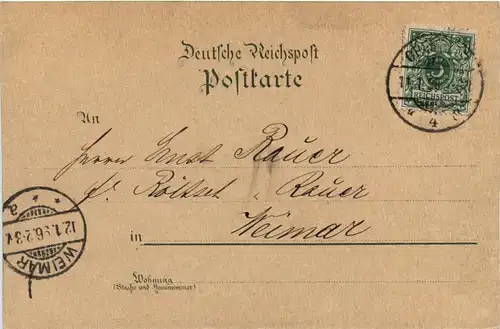 Deutsche Reichspost
Postkarte
5
REICHSPOST
An
Herrn Ernst Rauer
Rauer
in Weimar
12.1.96.2-3N.
WEIMAR
Wohnung
(Straße und Hausnummer)